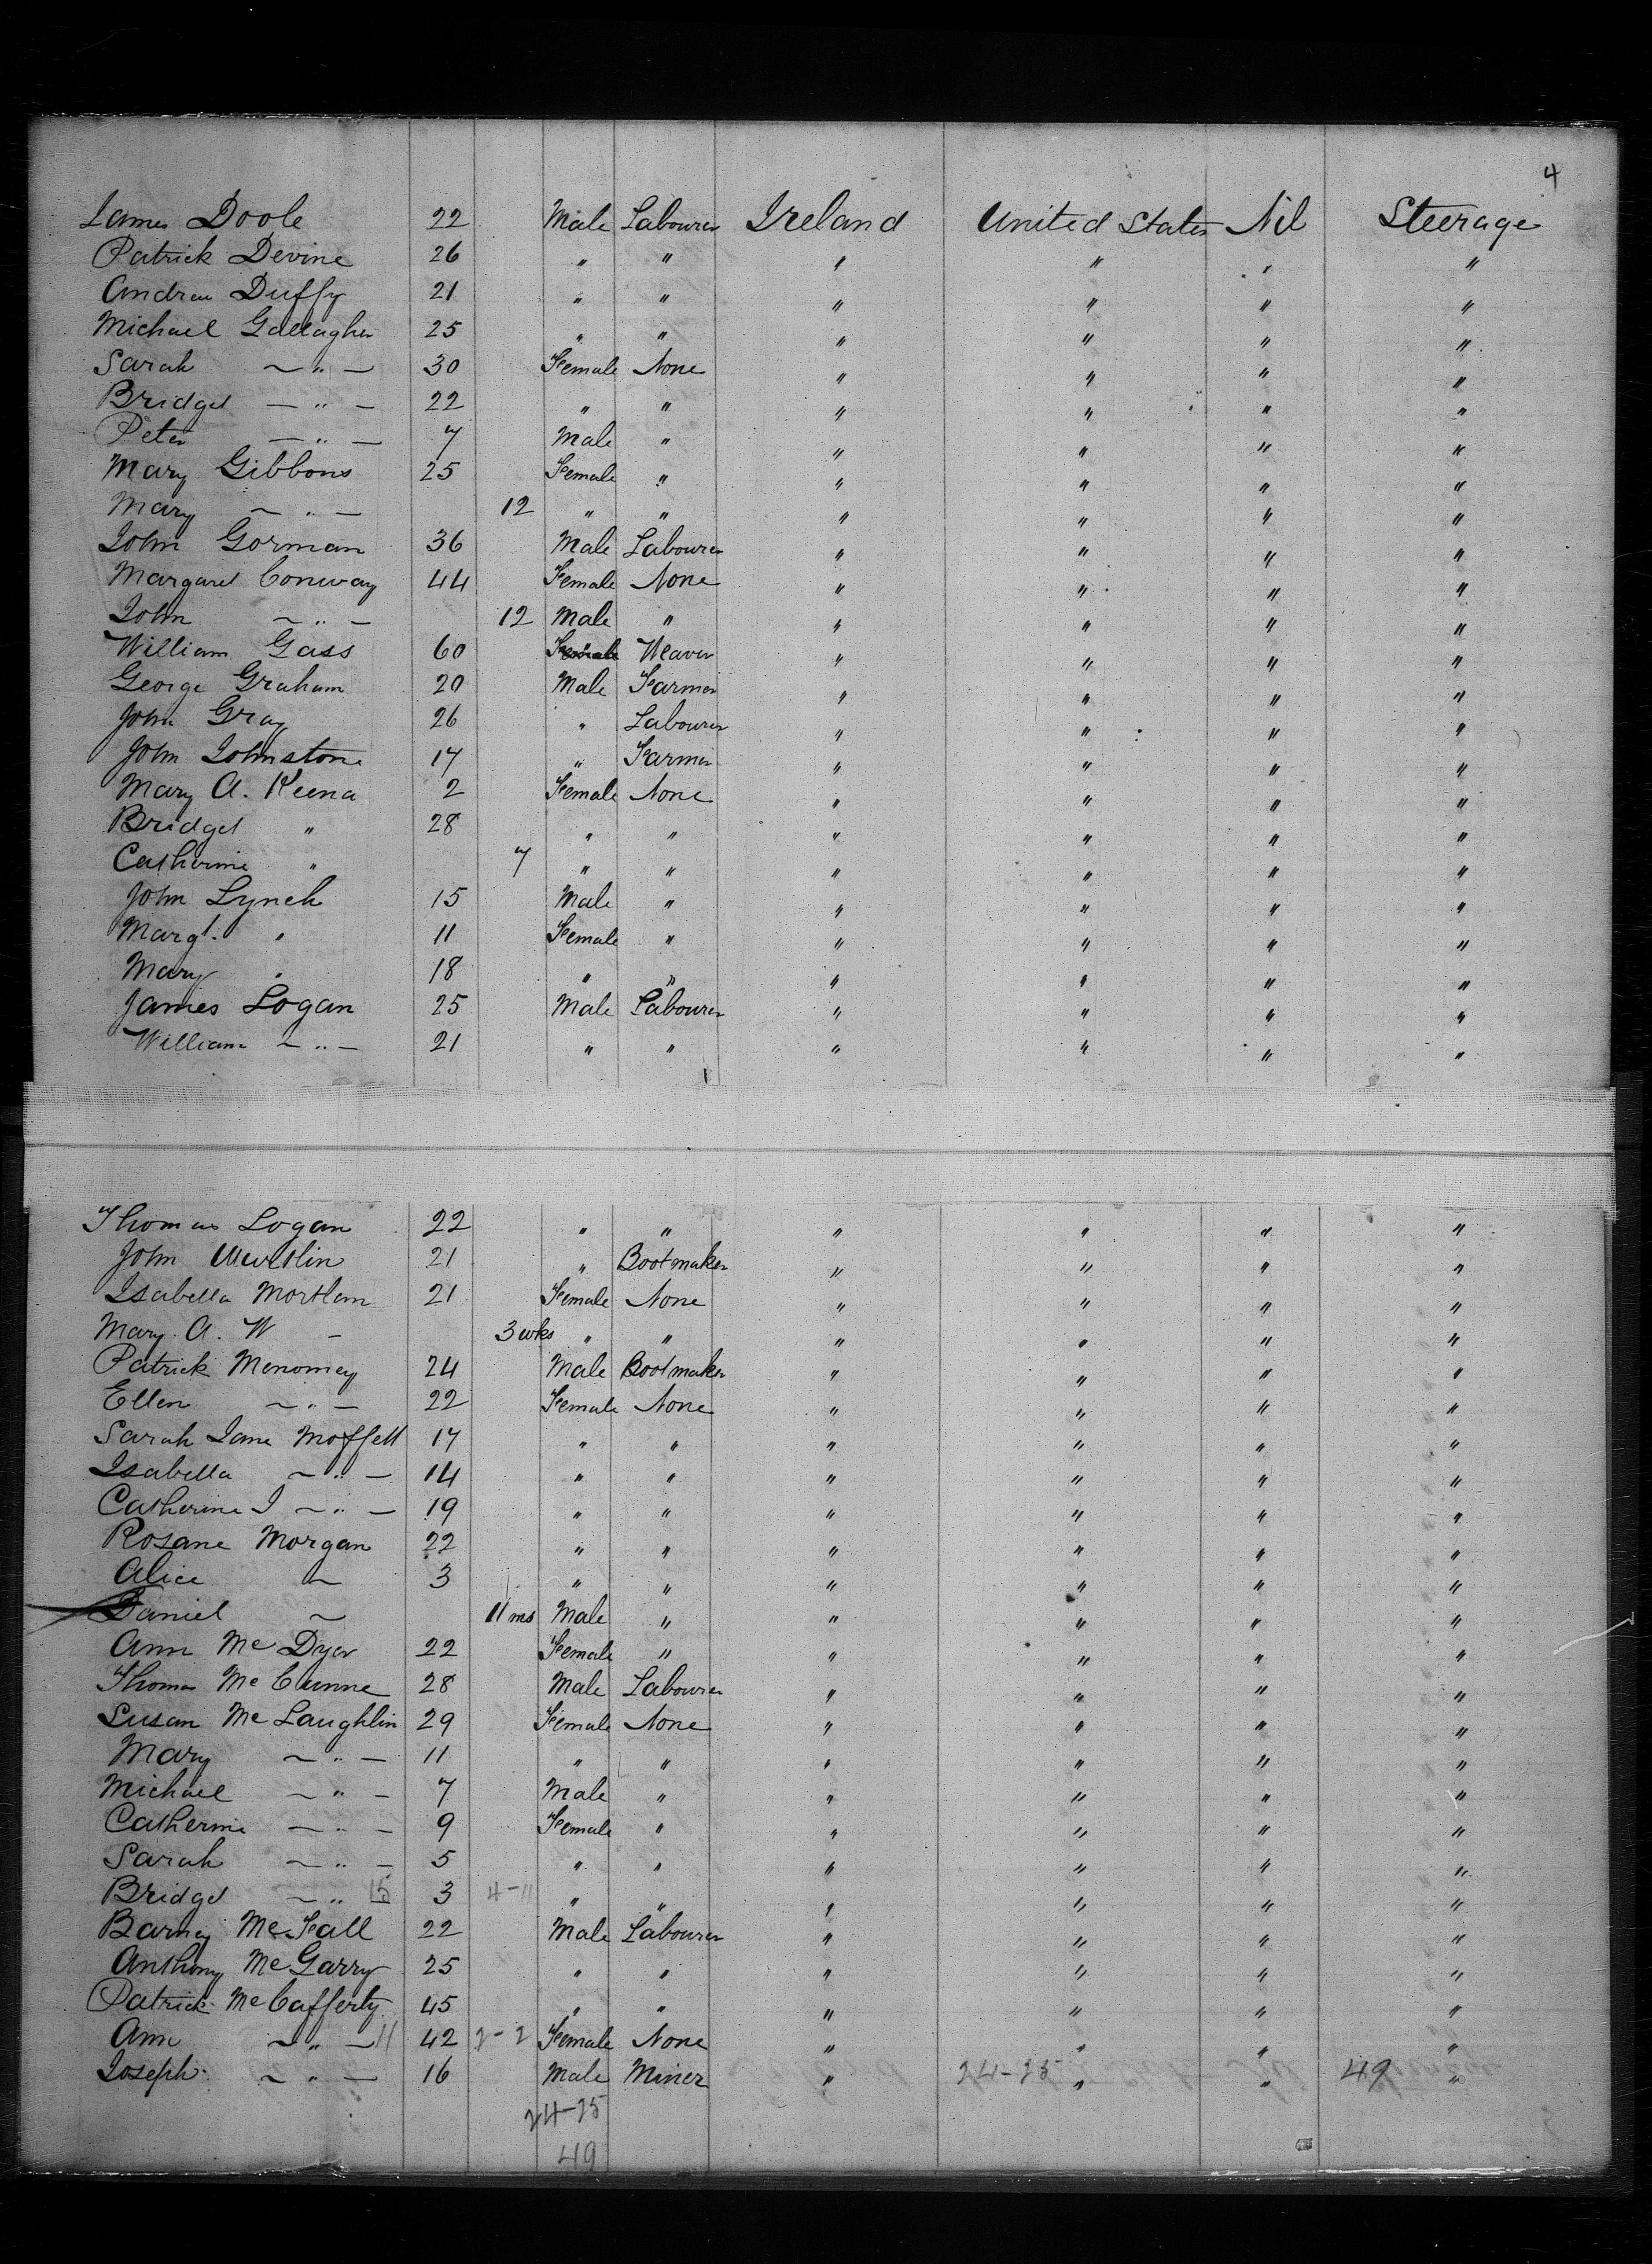 4
James Doole 22 Male Labourer Ireland United States Nil Steerage
Patrick Devine 26 " " " " " "
Andrew Duffy 21 " " " " " "
Michael Gallagher 25 " " " " " "
Sarah — " — 30 Female None " " " "
Bridget — " — 22 " " " " " "
Peter — " — 7 Male " " " " "
Mary Gibbons 25 Female " " " " "
Mary — " — 12 " " " " " "
John Gorman 36 Male Labourer " " " "
Margaret Conway 44 Female None " " " "
John — " — 12 Male " " " " "
William Gass 60 Female Weaver " " " "
George Graham 20 Male Farmer " " " "
John Gray 26 " Labourer " " " "
John Johnstone 17 " Farmer " " " "
Mary A. Keena 2 Female None " " " "
Bridget " 28 " " " " " "
Catherine " 7 " " " " " "
John Lynch 15 Male " " " " "
Margt. " 11 Female " " " " "
Mary " 18 " " " " " "
James Logan 25 Male Labourer " " " "
William — " — 21 " " " " " "
Thomas Logan 22 " " " " " "
John 21 " Bootmaker " " " "
Isabella Mortlam 21 Female None " " " "
Mary A. W — 3 wks " " " " " "
Patrick Menomey 24 Male Bootmaker " " " "
Ellen — " — 22 Female None " " " "
Sarah Jane Moffett 17 " " " " " "
Isabella — " — 14 " " " " " "
Catherine J — " — 19 " " " " " "
Rosane Morgan 22 " " " " " "
Alice — 3 " " " " " "
Daniel — 11 ms Male " " " " "
Ann Mc Dyer 22 Female " " " " "
Thomas Mc Cunne 28 Male Labourer " " " "
Susan Mc Laughlin 29 Female None " " " "
Mary — " — 11 " " " " " "
Michael — " — 7 Male " " " " "
Catherine — " — 9 Female " " " " "
Sarah — " — 5 " " " " " "
Bridget — " 15 3 4-11 " " " " " "
Barney McFall 22 Male Labourer " " " "
Anthony McGarry 25 " " " " " "
Patrick McCafferty 45 " " " " " "
Ann — " — 11 42 2-2 Female None " " " "
Joseph — " — 16 Male Miner " 24-25 " " 49 "
24-25
49